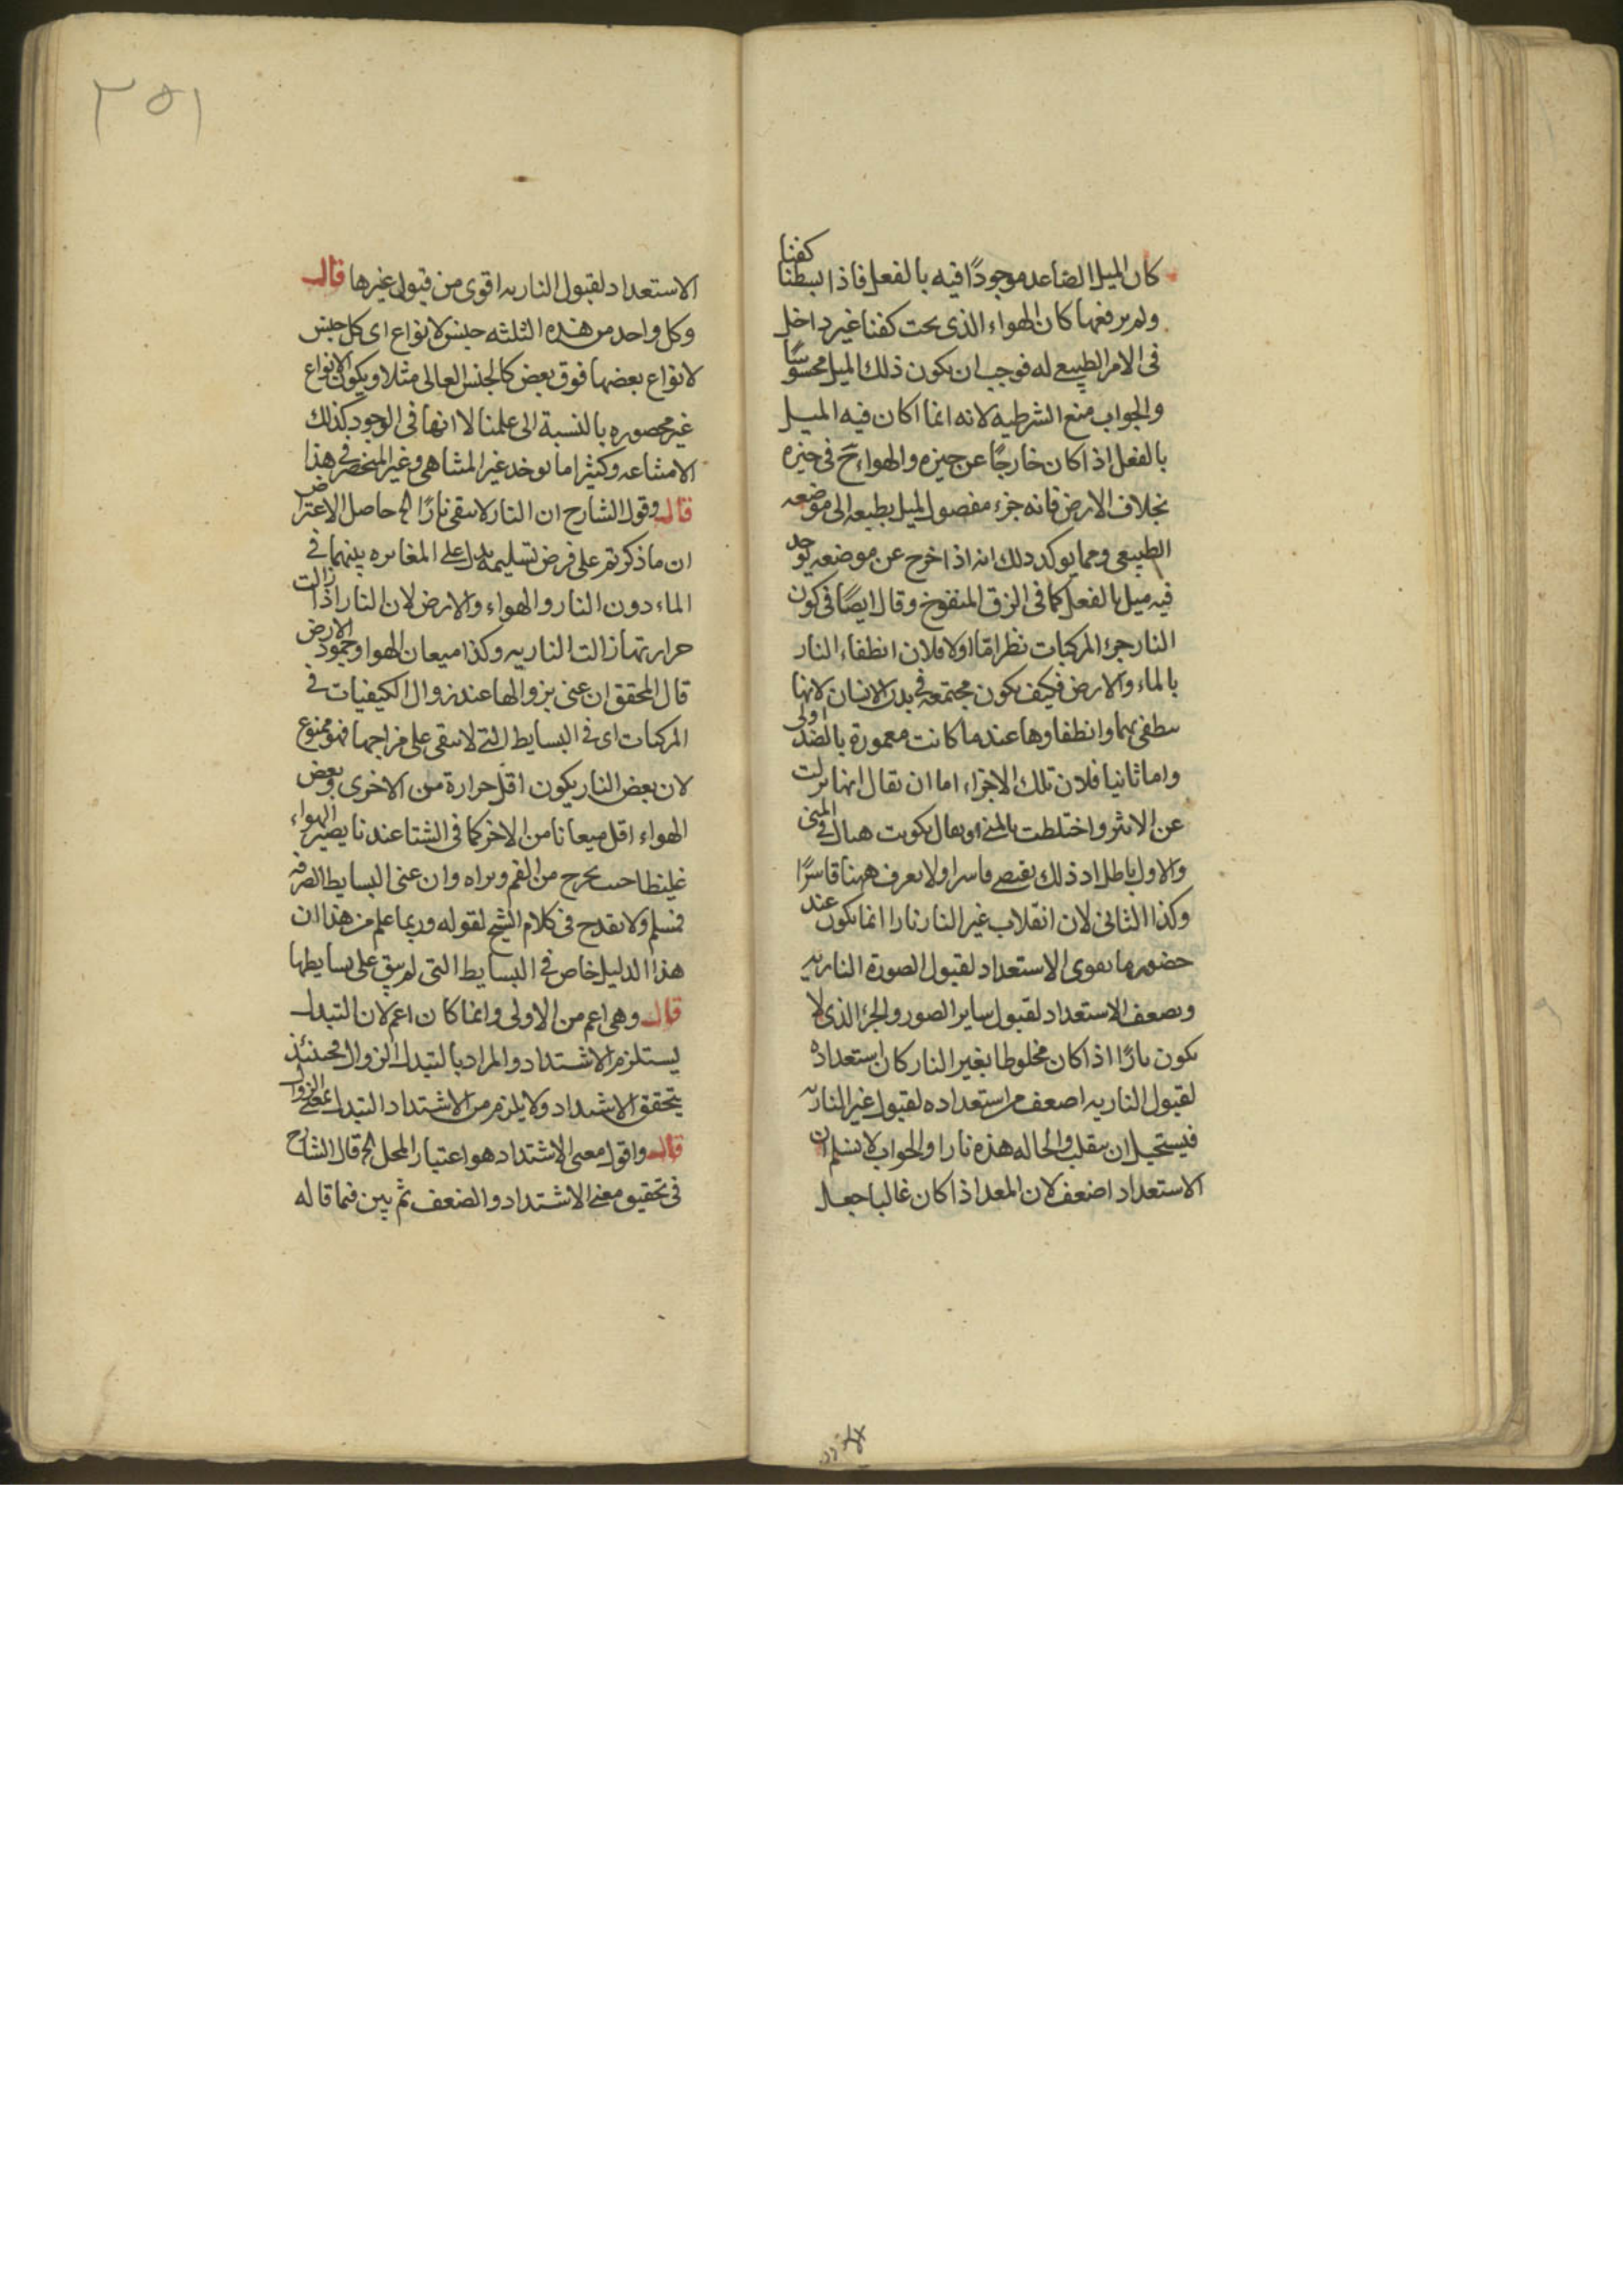 كان الميل الصاعد موجودًا فيه بالفعل فاذا بسطنا كفنا
ولم يرفعها كان الهواء الذى تحت كفنا غير داخل
فى الامر الطبيعى له فوجب ان يكون ذلك الميل محسوسًا
والجواب منع الشرطيه لانه انما كان فيه الميل
بالفعل اذا كان خارجًا عن حيزه والهواء ح فى حيزه
بخلاف الارض فانه جزء مفصول لميل بطبعه الى موضعه
الطبيعى ومما يوكد ذلك انه اذا خرج عن موضعه يوجد
فيه ميل بالفعل كما فى الزق المنفوخ وقال ايضًا فى كون
النار جزء المركبات نظر امّا اولا فلان انطفاء النار
بالماء والارض فكيف يكون مجتمعه فى بدن الانسان لانها
ينطفى بهما وانطفاوها عندما كانت مغمورة بالضد اولى
واما ثانيا فلان تلك الاجزاء اما ان يقال انها نزلت
عن الاثير واختلطت بالمنى او يقال يكونت هناك فى المنى
والاول باطل اذ ذلك يقتضى قاسرا ولا يعرف ههنا قاسرًا
وكذا الثانى لان انقلاب غير النار نارا انما يكون عند
حضور ما يقوى الاستعداد لقبول الصورة الناريه
ويضعف الاستعداد لقبول ساير الصور والجزء الذى لا
يكون نارًا اذا كان مخلوطا بغير النار كان استعداده
لقبول الناريه اضعف من استعداده لقبول غير الناريه
فيستحيل ان ينقلب والحاله هذه نارا والجواب لا نسلم ان
الاستعداد اضعف لان المعد اذا كان غالبا جعل
١٥٣
الاستعداد لقبول الناريه اقوى من قبول غيرها قال
وكل واحد من هذه الثلثه جنس لانواع اى كل جنس
لانواع بعضها فوق بعض كالجنس العالى مثلا ويكون الانواع
غير محصوره بالنسبة الى علمنا لا انها فى الوجود كذلك
وكثيرا ما يوخد غير المتناهى وغير المنحصر فى هذا
قال وقول الشارح ان النار لا يبقى نارًا الخ حاصل الاعتراض
ان ما ذكرتم على فرض تسليمه يدل على المغايره بينهما فى
الماء دون النار والهواء والارض لان النار اذا زالت
حرارتها زالت الناريه وكذا ميعان الهوا وجمود الارض
قال المحقق ان عنى بزوالها عند زوال الكيفيات فى
المركبات اى فى البسايط التى لا يبقى على مزاجها فهو ممنوع
لان بعض النار يكون اقل حرارة من الاخرى وبعض
الهواء اقل ميعانا من الاخر كما فى الشتا عندنا يصير الهواء
غليظا حتى يخرج من الفم ويراه وان عنى البسايط الصرفه
فمسلم ولا يقدح فى كلام الشيخ لقوله وربما علم من هذا ان
هذا الدليل خاص فى البسايط التى لم يبق على بسايطها
قال وهى اعم من الاولى وانما كان اعم لان التبدل
يستلزم الاشتداد والمراد بالتبدل الزوال فحينئذ
يتحقق الاشتداد ولا يلزم من الاشتداد التبدل بمعنى الزوال
قال واقول معنى الاشتداد هو اعتبار المحل الخ قال الشارح
فى تحقيق معنى الاشتداد والضعف ثم بين فيما قاله